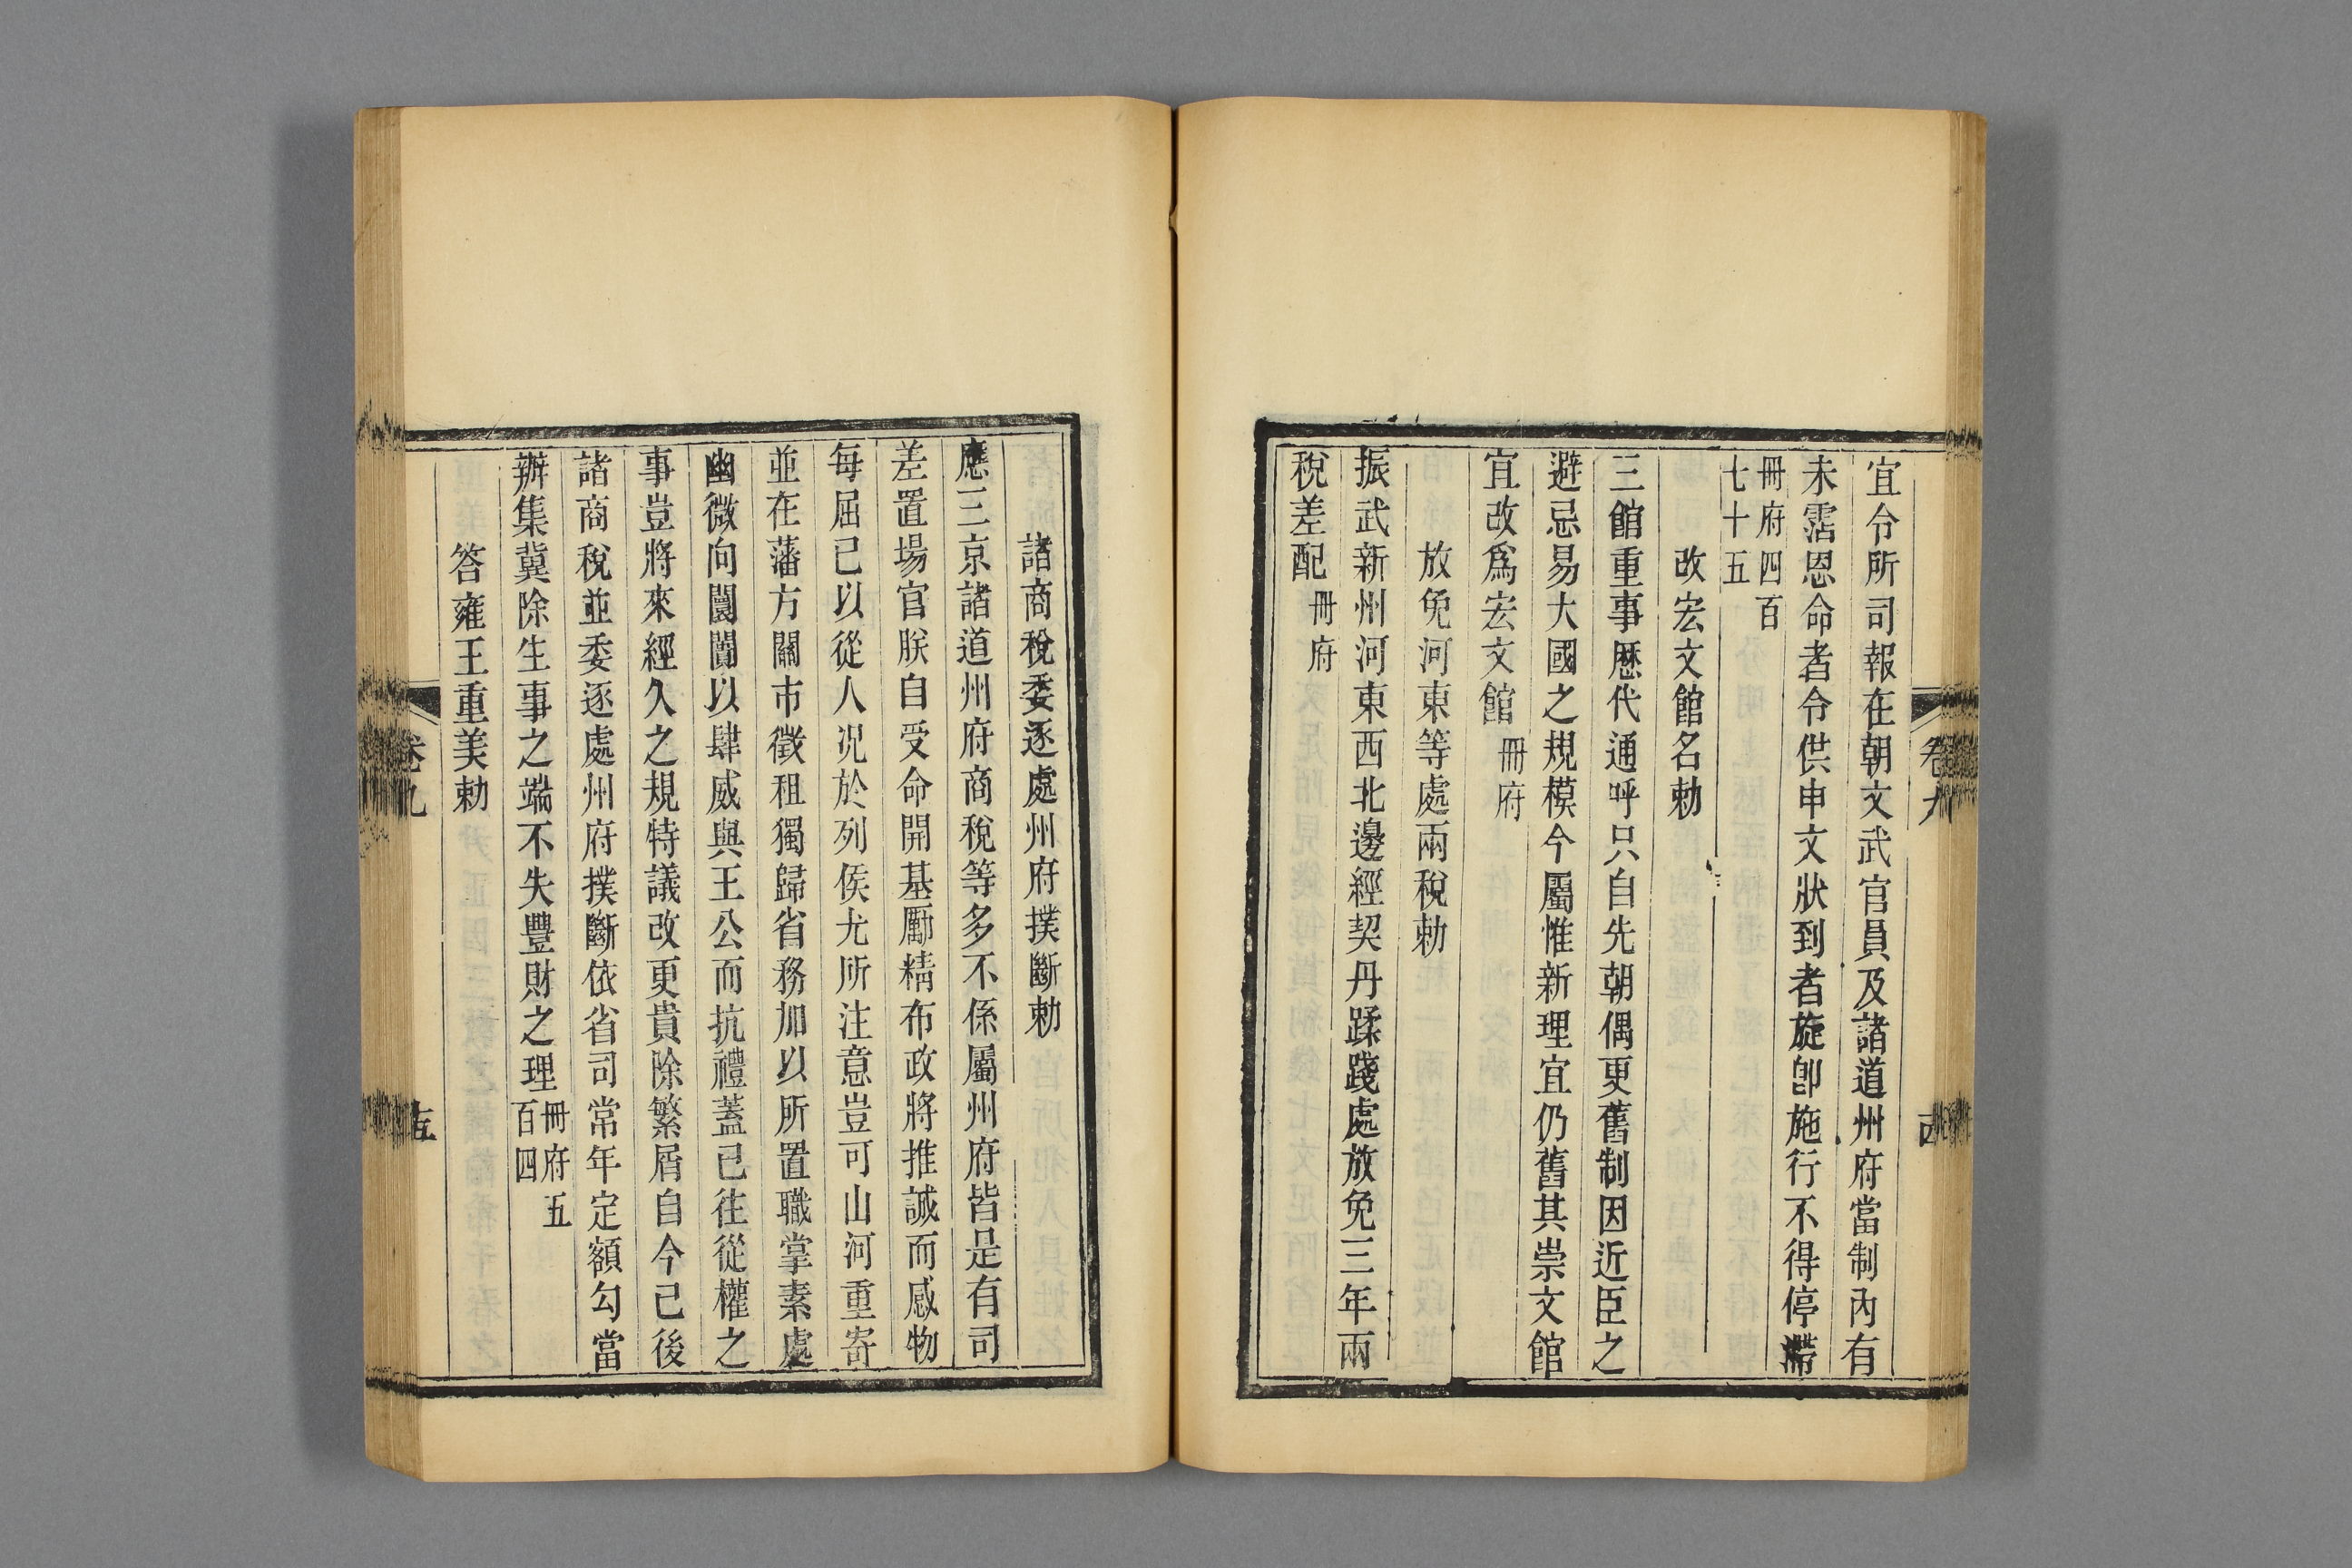 宜令所司報在朝文武官員及諸道州府當制內有
未霑恩命者令供申文狀到者旋卽施行不得停滯
冊府四百
七十五
改宏文館名勅
三館重事歷代通呼只自先朝偶更舊制因近臣之
避忌易大國之規模今屬惟新理宜仍舊其崇文館
宜改爲宏文館冊府
放免河東等處兩稅勅
振武新州河東西北邊經契丹蹂踐處放免三年兩
稅差配冊府
卷九
諸商稅委逐處州府撲斷勅
應三京諸道州府商稅等多不係屬州府皆是有司
差置場官朕自受命開基勵精布政將推誠而感物
每屈己以從人況於列侯尤所注意豈可山河重寄
並在藩方關市徵租獨歸省務加以所置職掌素處
幽微向闤闠以肆威與王公而抗禮蓋已往從權之
事豈將來經久之規特議改更貴除繁屑自今已後
諸商稅並委逐處州府撲斷依省司常年定額勾當
辦集冀除生事之端不失豐財之理冊府五
百四
答雍王重美勅
卷九